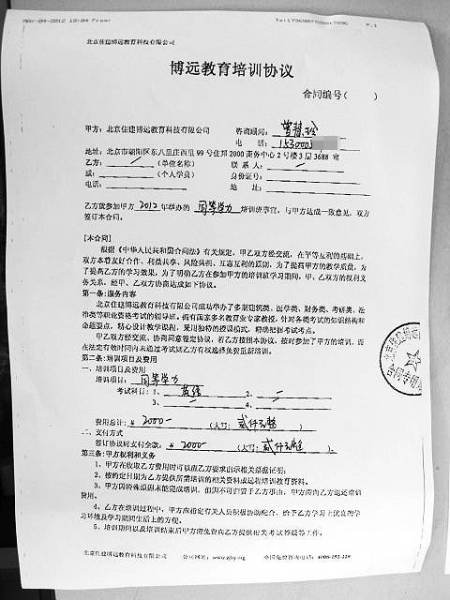 北京住建博远教育科技有限公司
博远教育培训协议
合同编号（ ）
甲方：北京住建博远教育科技有限公司 咨询顾问：
电 话：
地址：北京市朝阳区东八里庄西里 99 号住邦 2000 商务中心 2 号楼 3 层 3688 室
乙方： （单位名称） 联 系 人：
或： （个人学员） 身份证号：
电话： 地 址：
乙方就参加甲方 2012 年举办的 同等学力 培训班事宜，与甲方达成一致意见，双方
签订本合同。
[本合同]
根据《中华人民共和国合同法》有关规定，甲乙双方经交流，在平等互利的基础上，
双方本着友好合作、利益共享、风险共担、互惠互利的原则，为了提高甲方的教学质量，为
了提高乙方的学习效果，为了明确乙方在参加甲方的培训就学习期间，甲、乙双方的权利义
务关系，经甲、乙双方协商达成如下协议。
第一条：服务内容
北京住建博远教育科技有限公司成功举办了多期建筑类、医学类、财务类、考研类、法
律类等职业资格考试的辅导班，拥有国家多名教育业专家教授，针对各类考试的知识结构和
命题要点，精心设计教学课程，采用独特的授课模式，精确把握考试考点。
甲乙双方经交流，协商同意签定协议，若乙方按照本协议，按时参加了甲方的培训，而
在法定有效时间内未通过考试则乙方有权选择免费重新培训。
第二条：培训项目及费用
一、培训项目及费用
培训项目： 同等学力
考试科目：1、 英语 2、
3、 4、
费用总计：￥ 2000- （大写：贰仟元整
二、支付方式
签订协议时支付全款：￥ 2000- （大写：贰仟元整 ）.
第三条：甲方权利和义务
1、甲方在收取乙方费用时可以而乙方要求出示相关票据证明；
2、按约定日期为乙方提供所需培训的相关资料或远程培训教育资料。
3、甲方因特殊原因未能完成培训，但因不可归责于乙方事由，甲方需向乙方退还培训
费用。
4、乙方在培训过程中，甲方应指定有关人员积极协助配合，给予乙方学习上优良的学
习环境及学习期间生活上的方便。
5、培训期间以及培训结束后甲方需免费向乙方提供相关考试答疑等工作。
北京住建博远教育科技有限公司